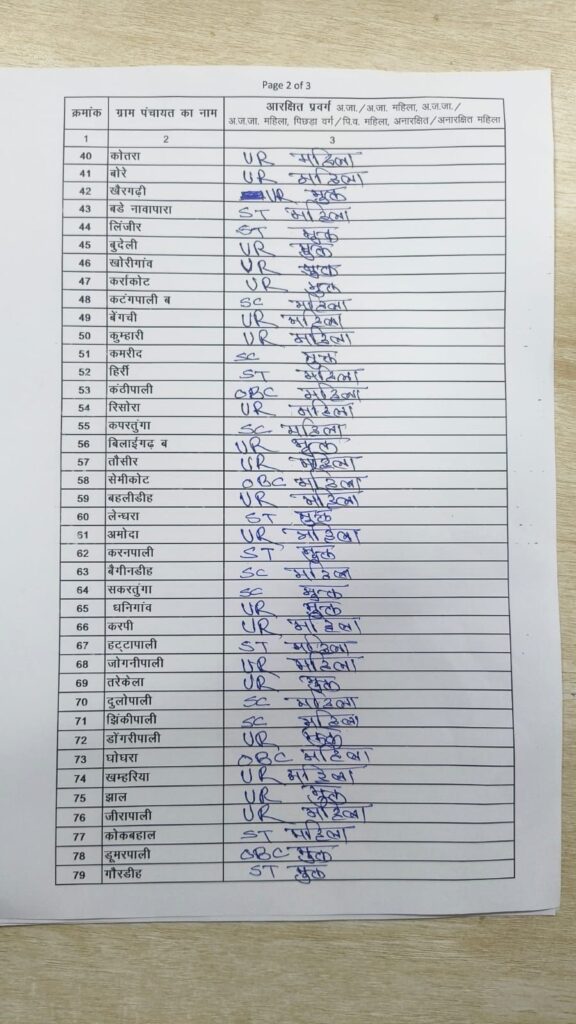 Page 2 of 3
क्रमांक ग्राम पंचायत का नाम आरक्षित प्रवर्ग अ.जा./अ.जा. महिला, अ.ज.जा./
अ.ज.जा. महिला, पिछड़ा वर्ग/पि.व. महिला, अनारक्षित/अनारक्षित महिला
1 2 3
40 कोतरा UR महिला
41 बोरे UR महिला
42 खैरगढ़ी UR मुक्त
43 बडे नावापारा ST महिला
44 लिंजीर ST मुक्त
45 बुदेली UR मुक्त
46 खोरीगांव UR मुक्त
47 कर्राकोट UR मुक्त
48 कटंगपाली ब SC महिला
49 बेंगची UR महिला
50 कुम्हारी UR महिला
51 कमरीद SC मुक्त
52 हिर्री ST महिला
53 कंठीपाली OBC महिला
54 रिसोरा UR महिला
55 कपरतुंगा SC महिला
56 बिलाईगढ़ ब UR मुक्त
57 तौसीर UR महिला
58 सेमीकोट OBC महिला
59 बहलीडीह UR महिला
60 लेन्धरा ST मुक्त
61 अमोदा UR महिला
62 करनपाली ST मुक्त
63 बैगीनडीह SC महिला
64 सकरतुंगा SC मुक्त
65 धनिगांव UR मुक्त
66 करपी UR महिला
67 हट्टापाली ST महिला
68 जोगनीपाली UR महिला
69 तरेकेला UR मुक्त
70 दुलोपाली SC महिला
71 झिंकीपाली SC महिला
72 डोंगरीपाली UR मुक्त
73 घोघरा OBC महिला
74 खम्हरिया UR महिला
75 झाल UR मुक्त
76 जीरापाली UR महिला
77 कोकबहाल ST महिला
78 डूमरपाली OBC मुक्त
79 गौरडीह ST मुक्त